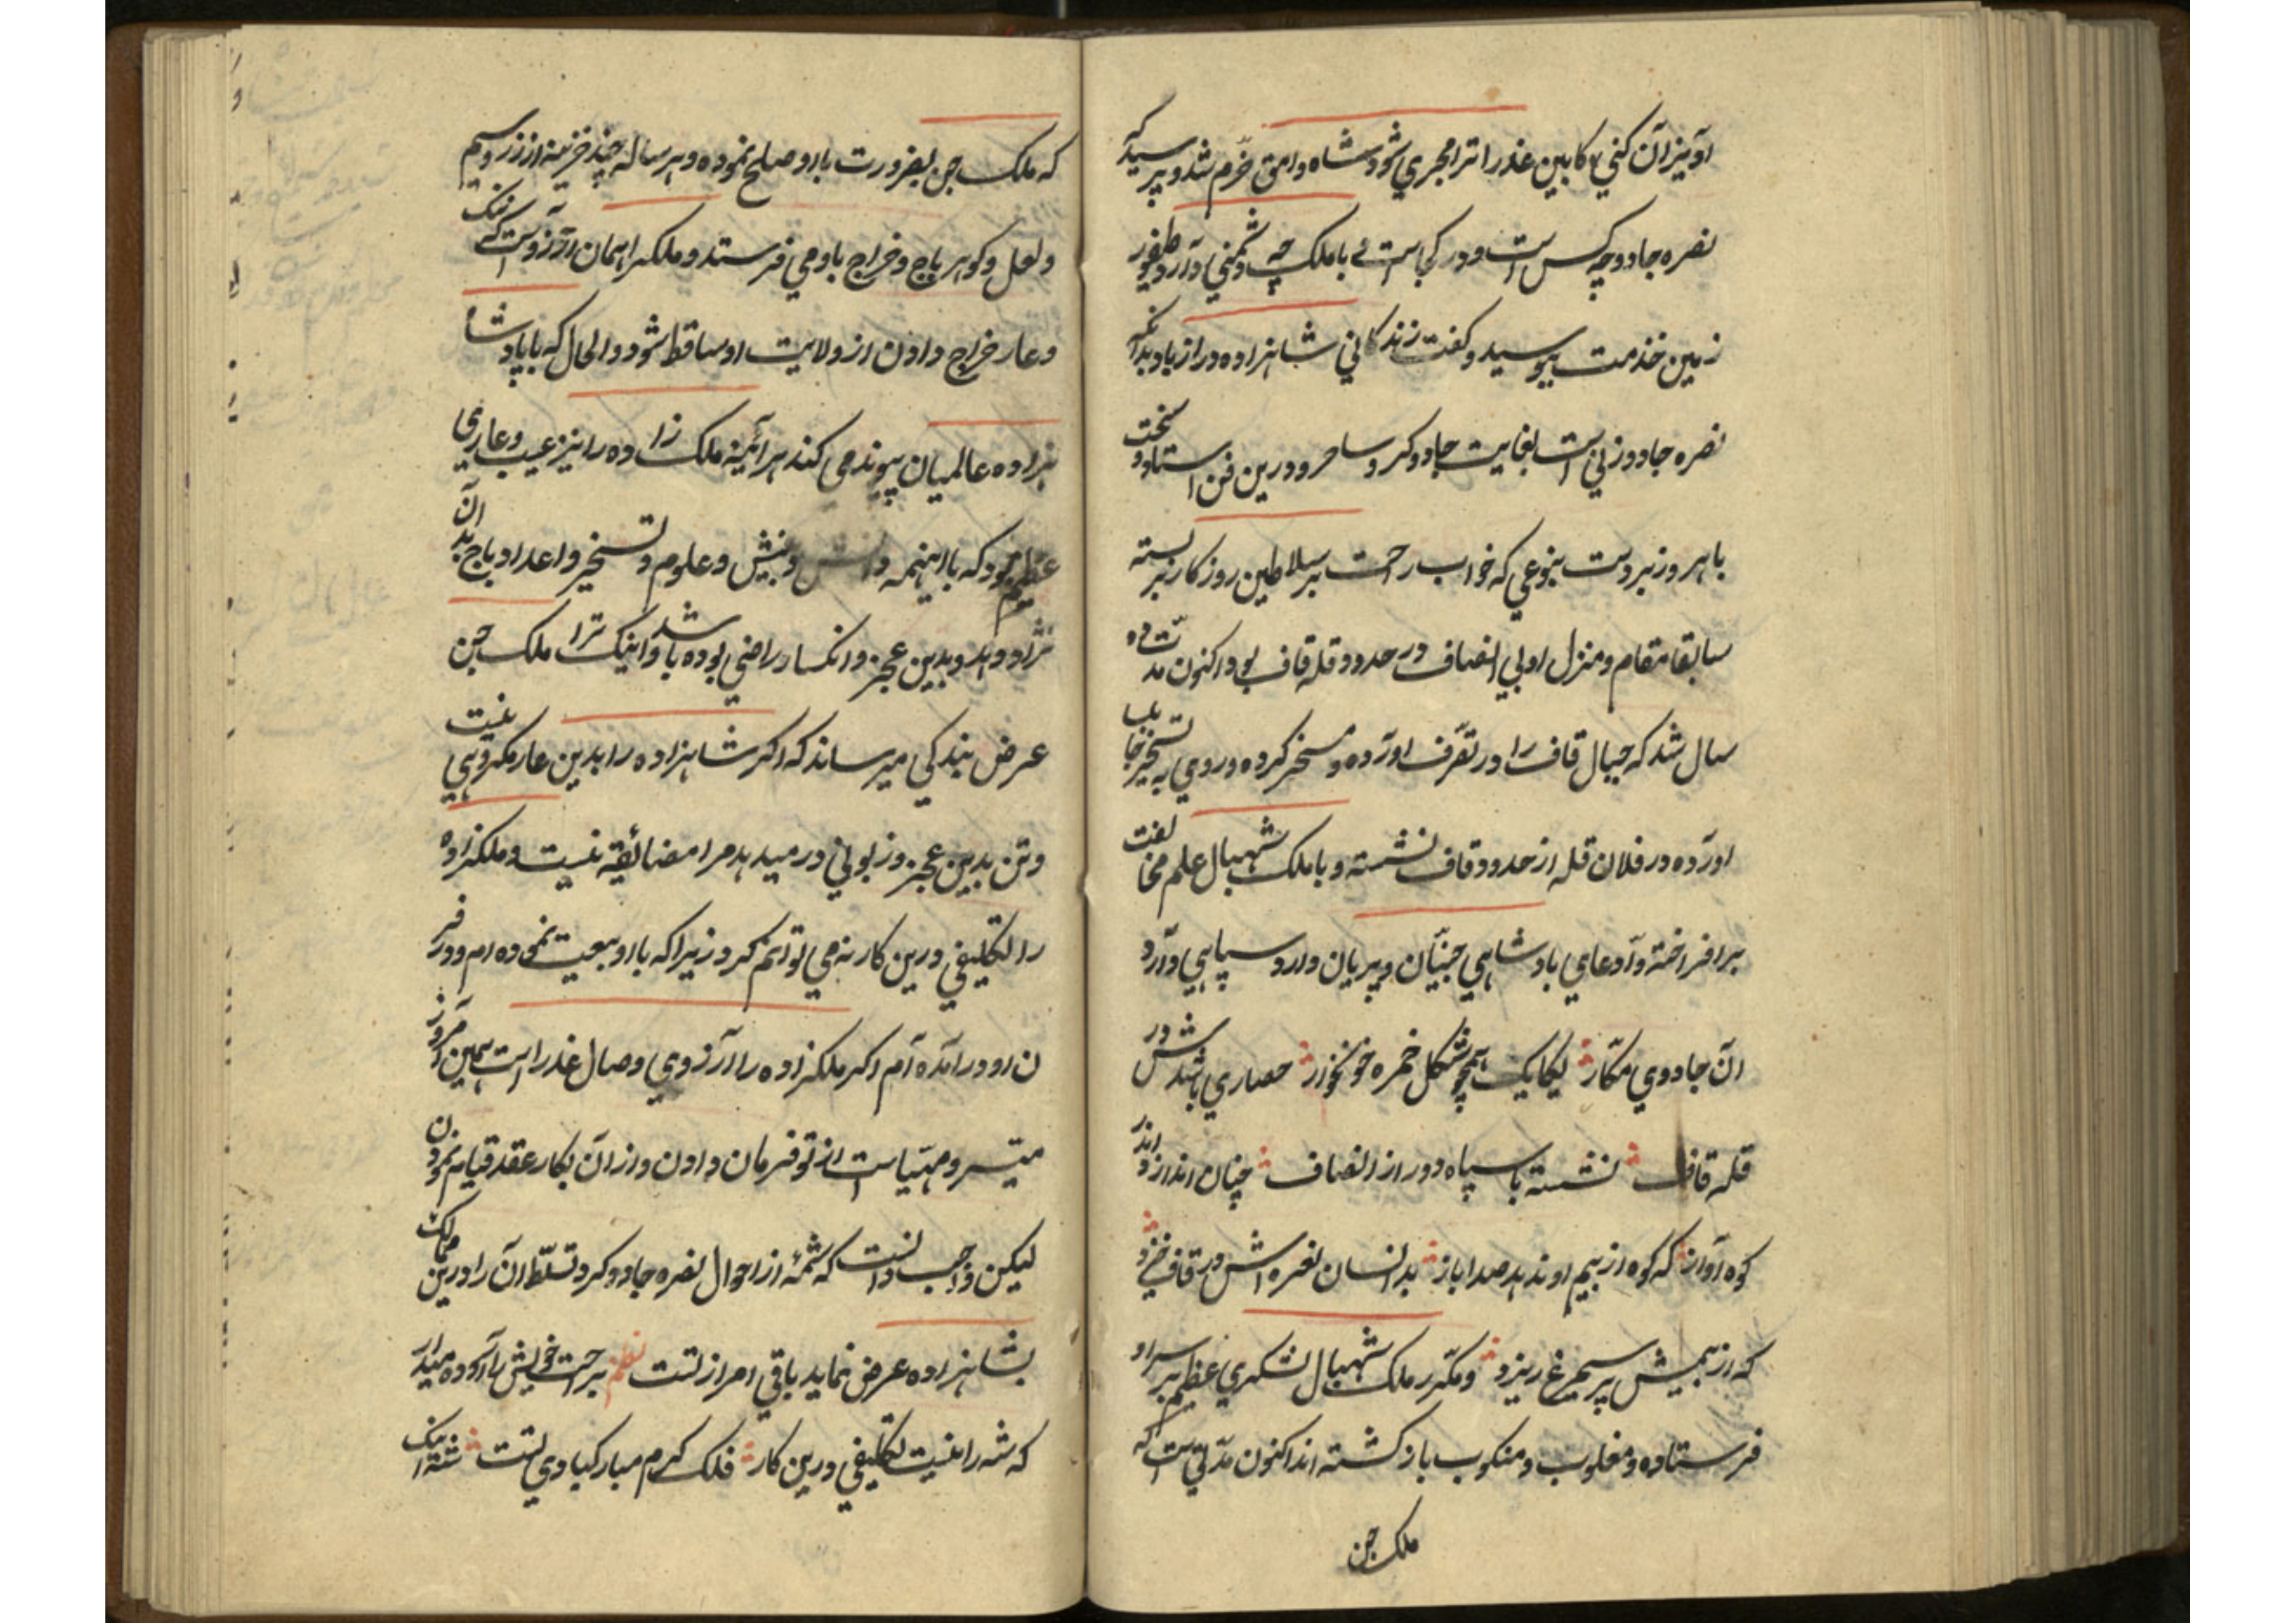 اویزان کنی کابین عذرا ترا مجری شود شاه وامق خرم شد و پرسید که
نصره جادو چه کس است و در کجاست با ملک چه دشمنی دارد طیفور
زمین خذمت ببوسید و کفت زندکانی شاهزاده دراز باد بدانکه
نصره جادو زنی است بغایت جادوکر و ساحر و درین فن استاد و سخت
باهر و زبردست بنوعی که خواب راحت بر سلاطین روزکار بر بسته
سابقا مقام و منزل اولی انصاف در حدود قله قاف بود اکنون مدت ده
سال شد که جبال قاف را در تصرف آورده و مسخر کرده و روی به تسخیر
آورده در فلان قله از حدود قاف نشسته و با ملک شهبال علم مخالفت
برافراخته و ادعای بادشاهی جنیان و پریان دارد سپاهی دارد
ان جادوی مکار یکایک همچو شکل خمره خونخوار حصاری باشدش در
قله قاف نشسته با سپاه دور از انصاف چنان اندازد اندر
کوه آواز که کوه از بیم او ندهد صدا باز بدانسان نعره اش در قاف خیزد
که از بیمش پر سیمرغ ریزد و مکرر ملک شهبال لشکری عظیم بر سر او
فرستاده و مغلوب و منکوب باز کشته اند اکنون مدتی است که
ملک جن
که ملک جن بضرورت با او صلح نموده و هر ساله چند خزینه از زر و سیم
و لعل و کوهر باج و خراج باو می فرستد و ملک را همان آرزوست که ننک
و عار خراج دادن از ولایت او ساقط شود و الحال که با پادشا
هزاده عالمیان پیوند می کند هر آئینه ملک زاده را نیز عیب و عاری
عظیم بود که با اینهمه دانش و بینش و علوم و تسخیر و اعداد باج بدان
نژاد دهد و بدین عجز و انکسار راضی بوده باشد و اینک ترا ملک جن
عرض بندکی میرساند که اکر شاهزاده را بدین عار مکروهی نیست
و تن بدین عجز و زبونی در میدهد مرا مضائقه نیست و ملکزاده
را تکلیفی درین کار نه می توانم کرد زیرا که با او بیعت نموده ام و در فر
ان او در آمده ام اکر ملکزاده را آرزوی وصال عذرا است همین امروز
میسر و مهیاست از تو فرمان دادن و از آن بکار عقد قیام نمودن
لیکن واجب دانست که شمهٔ از احوال نصره جادوکر و تسلط آن را درین ممالک
بشاهزاده عرض نماید باقی امر از تست نظم برحت خویش را آکوده میدار
که شه را نیست تکلیفی درین کار فلک کرم مبارکبادی تست